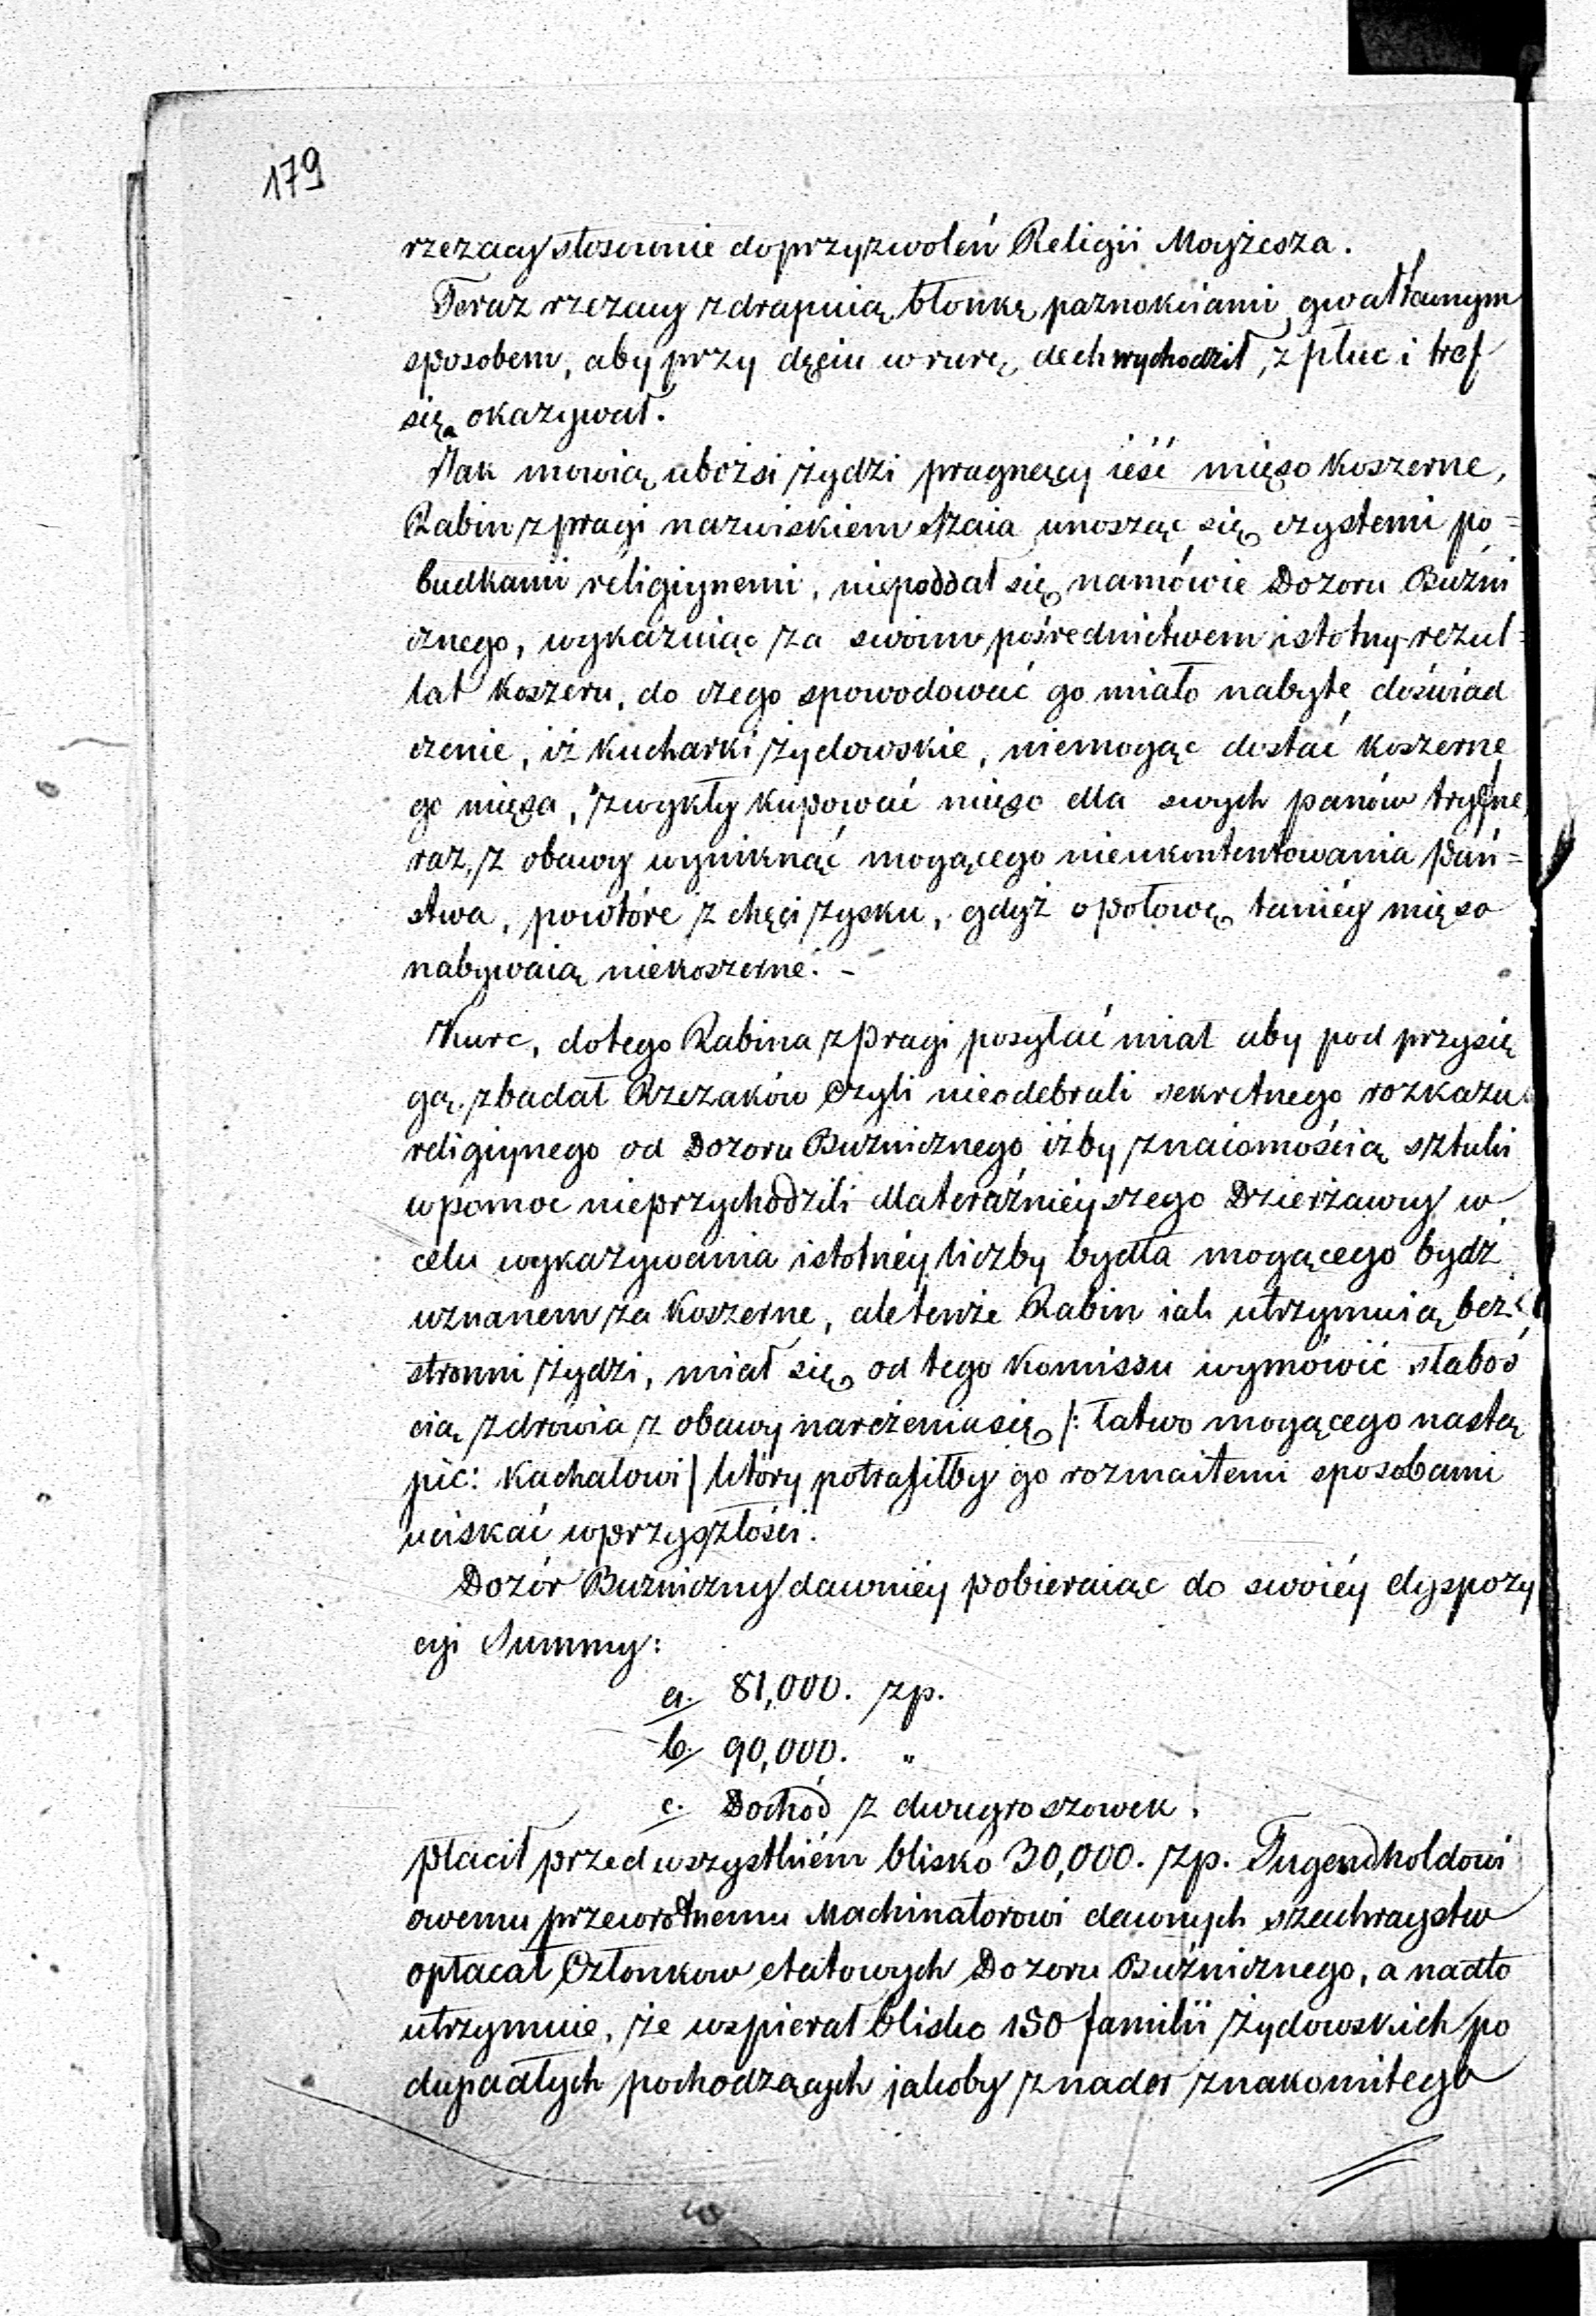 179
rzezacy stosownie do przyzwoleń Religii Moyżesza.
Teraz rzezacy zdrapuią błonkę paznokciami gwałtownym
sposobem, aby przy dęciu w rurę, dech wychodził, z płuc i tref
się okazywał.
Jak mowią ubożsi żydzi pragnęcy ieść mięso koszerne,
Rabin z pragi nazwiskiem Szaia unosząc się czystemi po=
budkami religiynemi, niepoddał się namówie Dozoru Bużni
cznego, wykazuiąc za swoim pośrednictwem istotny rezul=
tat koszeru, do czego spowodować go miało nabyte doświad
czenie, iż kucharki żydowskie, niemogąc dostać koszerne
go mięsa, zwykły kupować mięso dla swych panów tryfne,
raz, z obawy wyniknąć mogącego nieukontentowania Pań=
stwa, powtóre z chęci zysku, gdyż o połowę taniéy mięso
nabywaią niekoszerne. -
Kurc, do tego Rabina z Pragi posyłać miał aby pod przysię
gą zbadał Rzezaków czyli nieodebrali sekretnego rozkazu
religiynego od Dozoru Buzniczego iżby znaiomością sztuki
w pomoc nieprzychodzili dla teraźnieyszego Dzierżawcy w
celu wykazywania istotnéy liczby bydła mogącego bydź
uznanem za koszerne, ale tenże Rabin iak utrzymuią bez=
stronni żydzi, miał się od tego komissu wymówić słaboś
cią zdrowia z obawy narażenia się /: łatwo mogącego nastą
pić: Kachalowi / który potrafiłby go rozmaitemi sposobami
uciskać w przyszłości.
Dozór Buzniczny dawniéy pobieraiąc do swoiéy dyspozy
cyi Summy:
a. 81,000. zp.
b. 90,000. "
c. Dochód z dwugroszowek,
płacił przedewszystkiém blisko 30,000. zp. Tugendholdowi
owemu przewrotnemu Machinatorowi dawnych szachraystw
opłacał Członkow etatowych Dozoru Buźnicznego, a nadto
utrzymuie, że wspierał blisko 150 familii żydowskich po
dupadłych pochodzących jakoby z nader znakomitego